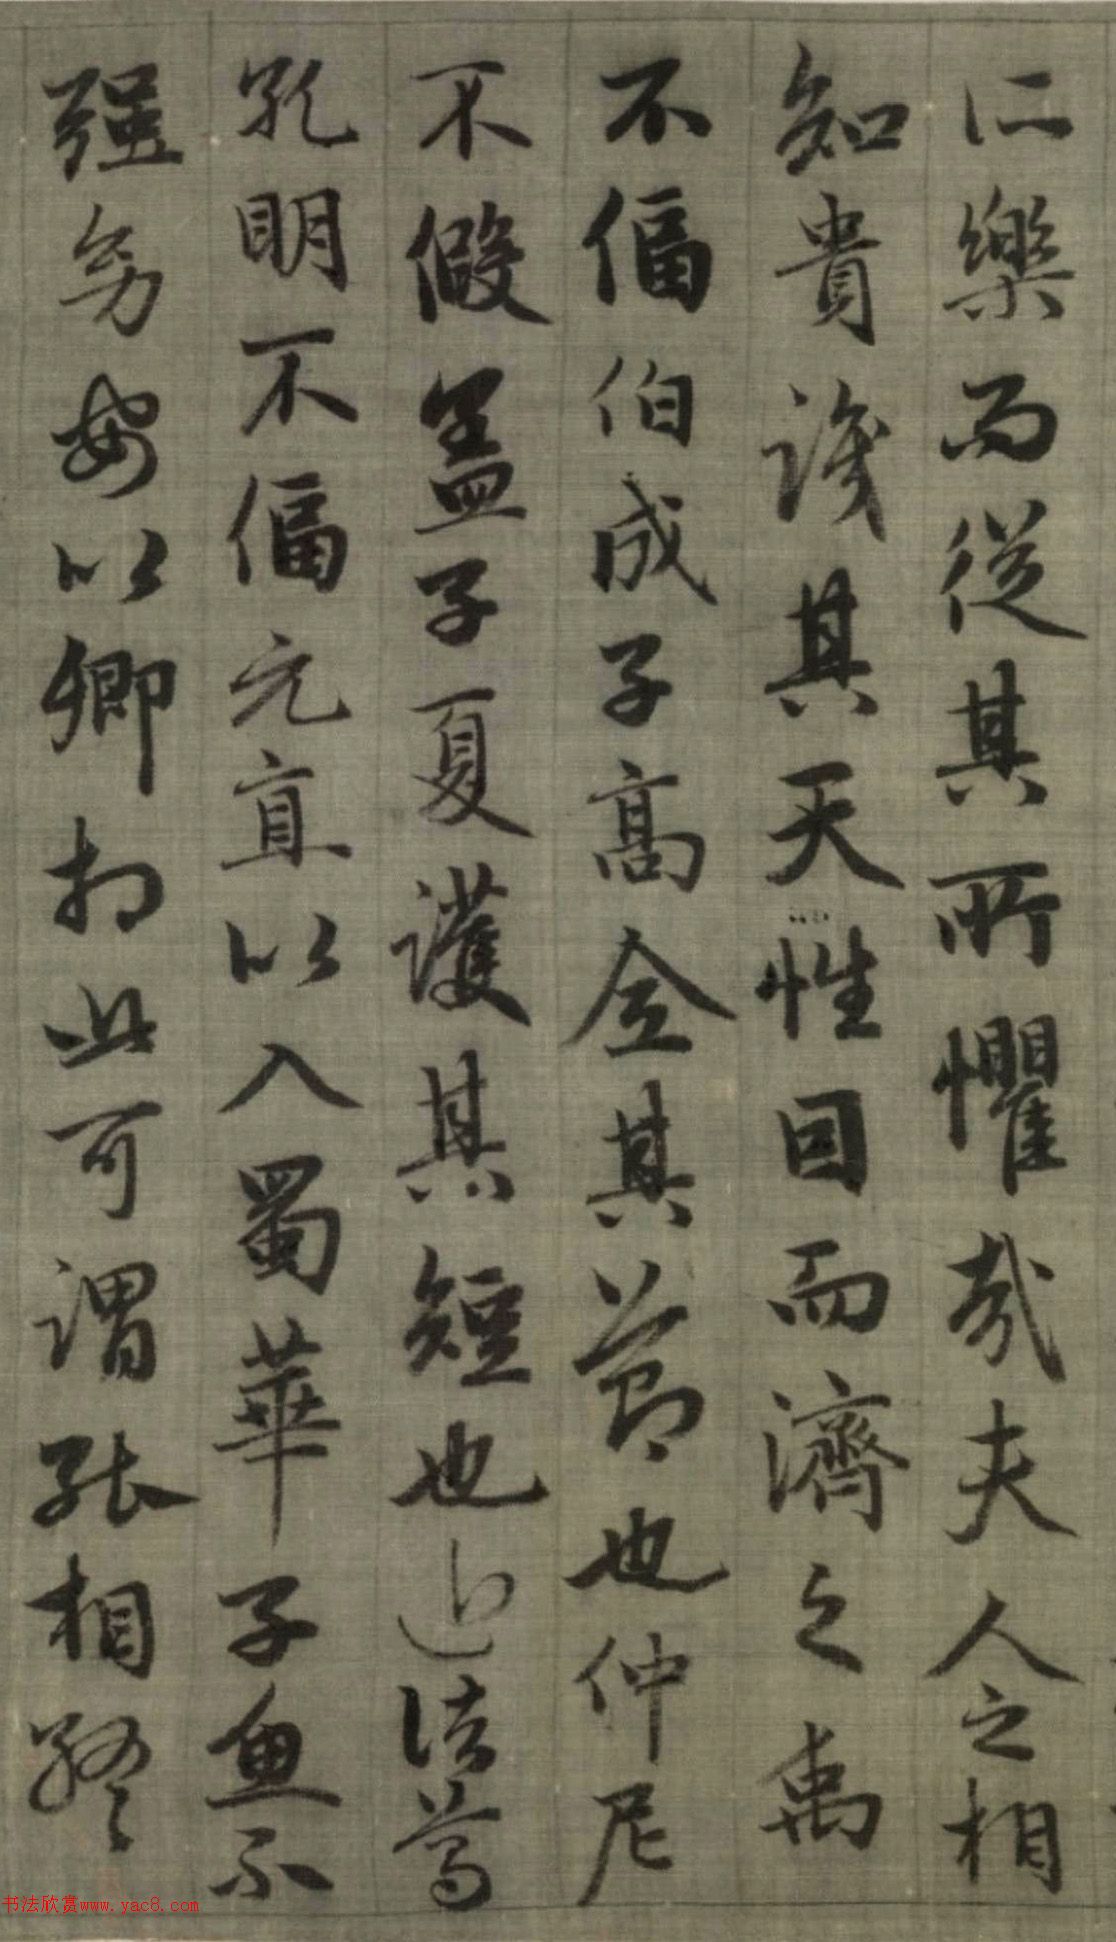 所樂而從其所懼哉夫人之相
知貴識其天性因而濟之禹
不偪伯成子高全其節也仲尼
不假盖子夏護其短也近諸葛
孔明不偪元直以入蜀華子魚不
强幼安以卿相此可謂能相終
书法欣赏www.yac8.com